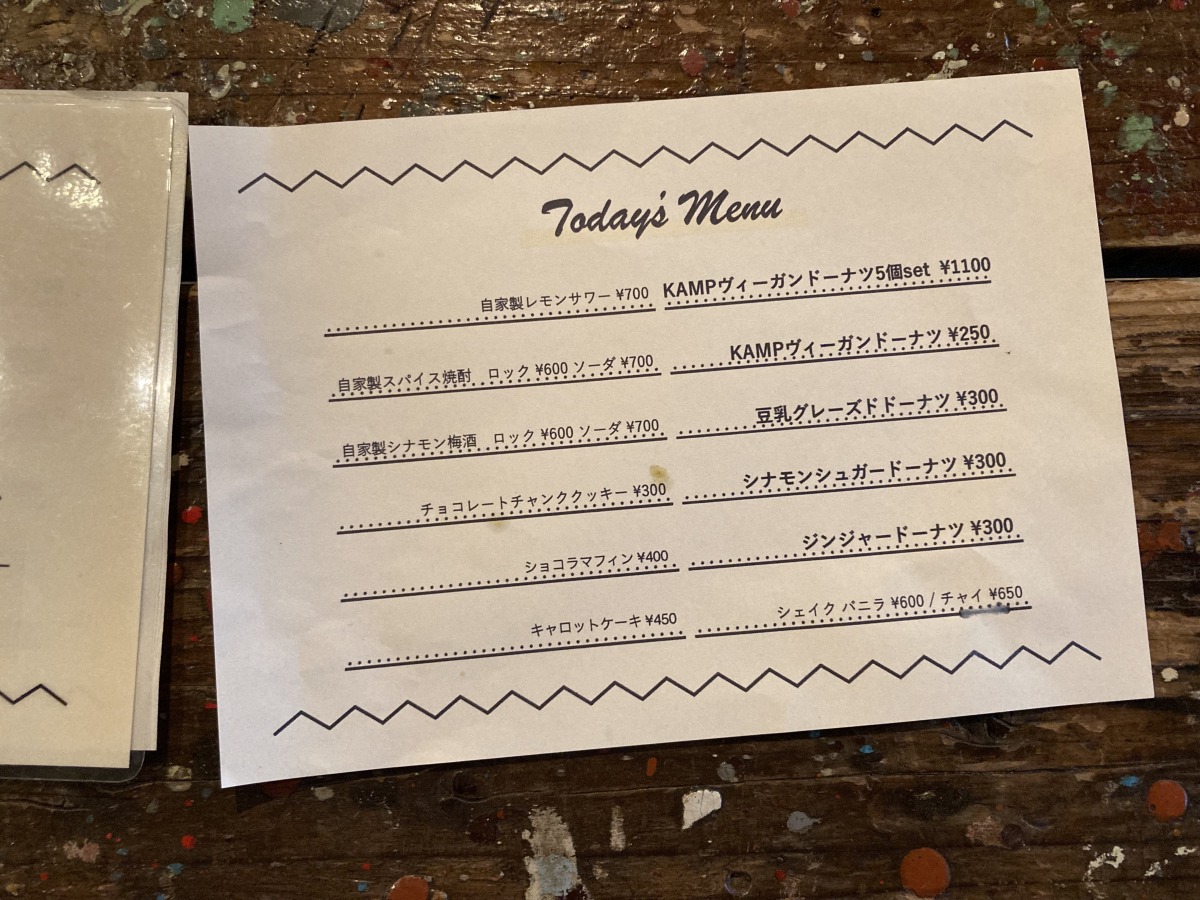 Today's Menu
自家製レモンサワー ¥700
自家製スパイス焼酎 ロック ¥600 ソーダ ¥700
自家製シナモン梅酒 ロック ¥600 ソーダ ¥700
チョコレートチャンククッキー ¥300
ショコラマフィン ¥400
キャロットケーキ ¥450
KAMPヴィーガンドーナツ5個set ¥1100
KAMPヴィーガンドーナツ ¥250
豆乳グレーズドドーナツ ¥300
シナモンシュガードーナツ ¥300
ジンジャードーナツ ¥300
シェイク バニラ ¥600 / チャイ ¥650